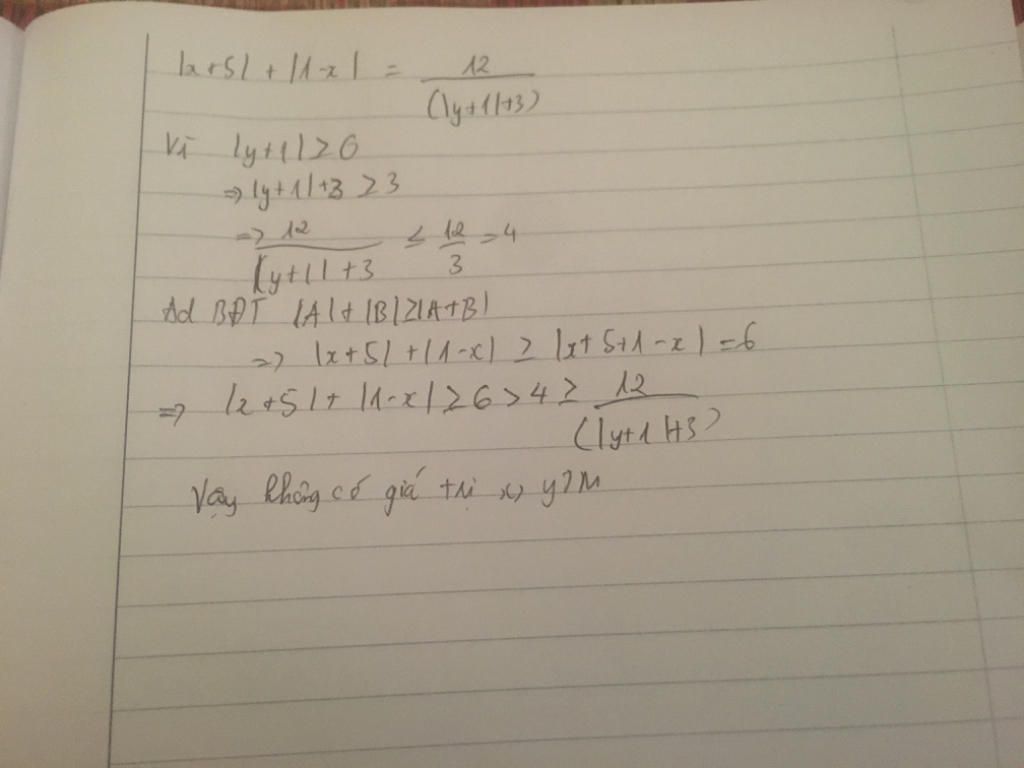 |x+5| + |1-x| = 12/(|y+1|+3)
Vì |y+1| ≥ 0
=> |y+1|+3 ≥ 3
=> 12/|y+1|+3 ≤ 12/3 = 4
Ad BĐT |A|+|B| ≥ |A+B|
=> |x+5|+|1-x| ≥ |x+5+1-x| = 6
=> |x+5|+|1-x| ≥ 6 > 4 ≥ 12/(|y+1|+3)
Vậy không có giá trị x, y TM